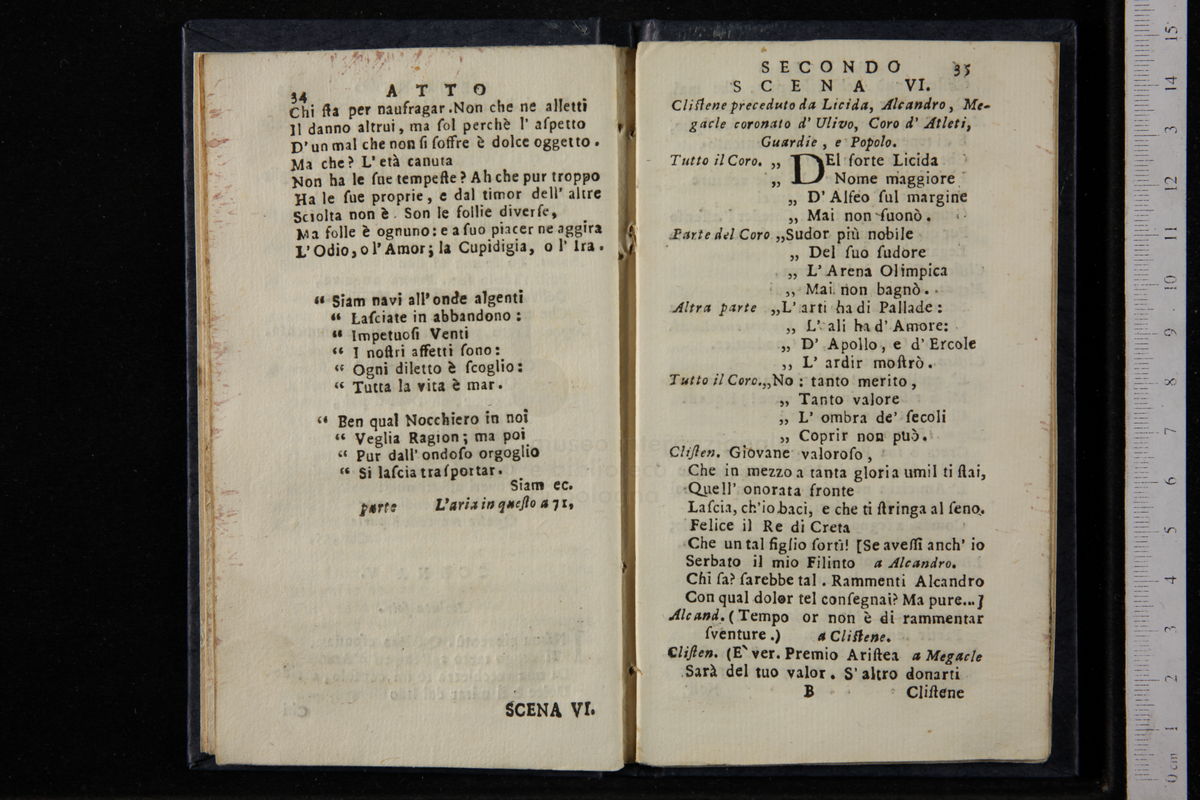 34
ATTO
Chi ſta per naufragar. Non che ne alletti
Il danno altrui, ma ſol perchè l' aſpetto
D' un mal che non ſi ſoffre è dolce oggetto.
Ma che? L' età canuta
Non ha le ſue tempeſte? Ah che pur troppo
Ha le ſue proprie, e dal timor dell' altre
Sciolta non è. Son le follie diverſe,
Ma folle è ognuno: e a ſuo piacer ne aggira
L' Odio, o l' Amor; la Cupidigia, o l' Ira.
“ Siam navi all' onde algenti
“ Laſciate in abbandono:
“ Impetuoſi Venti
“ I noſtri affetti ſono:
“ Ogni diletto è ſcoglio:
“ Tutta la vita è mar.
“ Ben qual Nocchiero in noi
“ Veglia Ragion; ma poi
“ Pur dall' ondoſo orgoglio
“ Si laſcia traſportar.
Siam ec.
parte L'aria in queſto a 71,
SCENA VI.
SECONDO 35
SCENA VI.
Cliſtene preceduto da Licida, Alcandro, Me-
gacle coronato d' Ulivo, Coro d' Atleti,
Guardie, e Popolo.
Tutto il Coro. „ DEl forte Licida
„ Nome maggiore
„ D' Alfeo ſul margine
„ Mai non ſuonò.
Parte del Coro „Sudor più nobile
„ Del ſuo ſudore
„ L' Arena Olimpica
„ Mai non bagnò.
Altra parte „L' arti ha di Pallade:
„ L' ali ha d' Amore:
„ D' Apollo, e d' Ercole
„ L' ardir moſtrò.
Tutto il Coro.„No: tanto merito,
„ Tanto valore
„ L' ombra de' ſecoli
„ Coprir non può.
Cliſten. Giovane valoroſo,
Che in mezzo a tanta gloria umil ti ſtai,
Quell' onorata fronte
Laſcia, ch'io baci, e che ti ſtringa al ſeno.
Felice il Re di Creta
Che un tal figlio ſortì! [Se aveſſi anch' io
Serbato il mio Filinto a Alcandro.
Chi ſa? ſarebbe tal. Rammenti Alcandro
Con qual dolor tel conſegnai? Ma pure...]
Alcand. (Tempo or non è di rammentar
ſventure.) a Cliſtene.
Cliſten. (E` ver. Premio Ariſtea a Megacle
Sarà del tuo valor. S' altro donarti
B Cliſtene